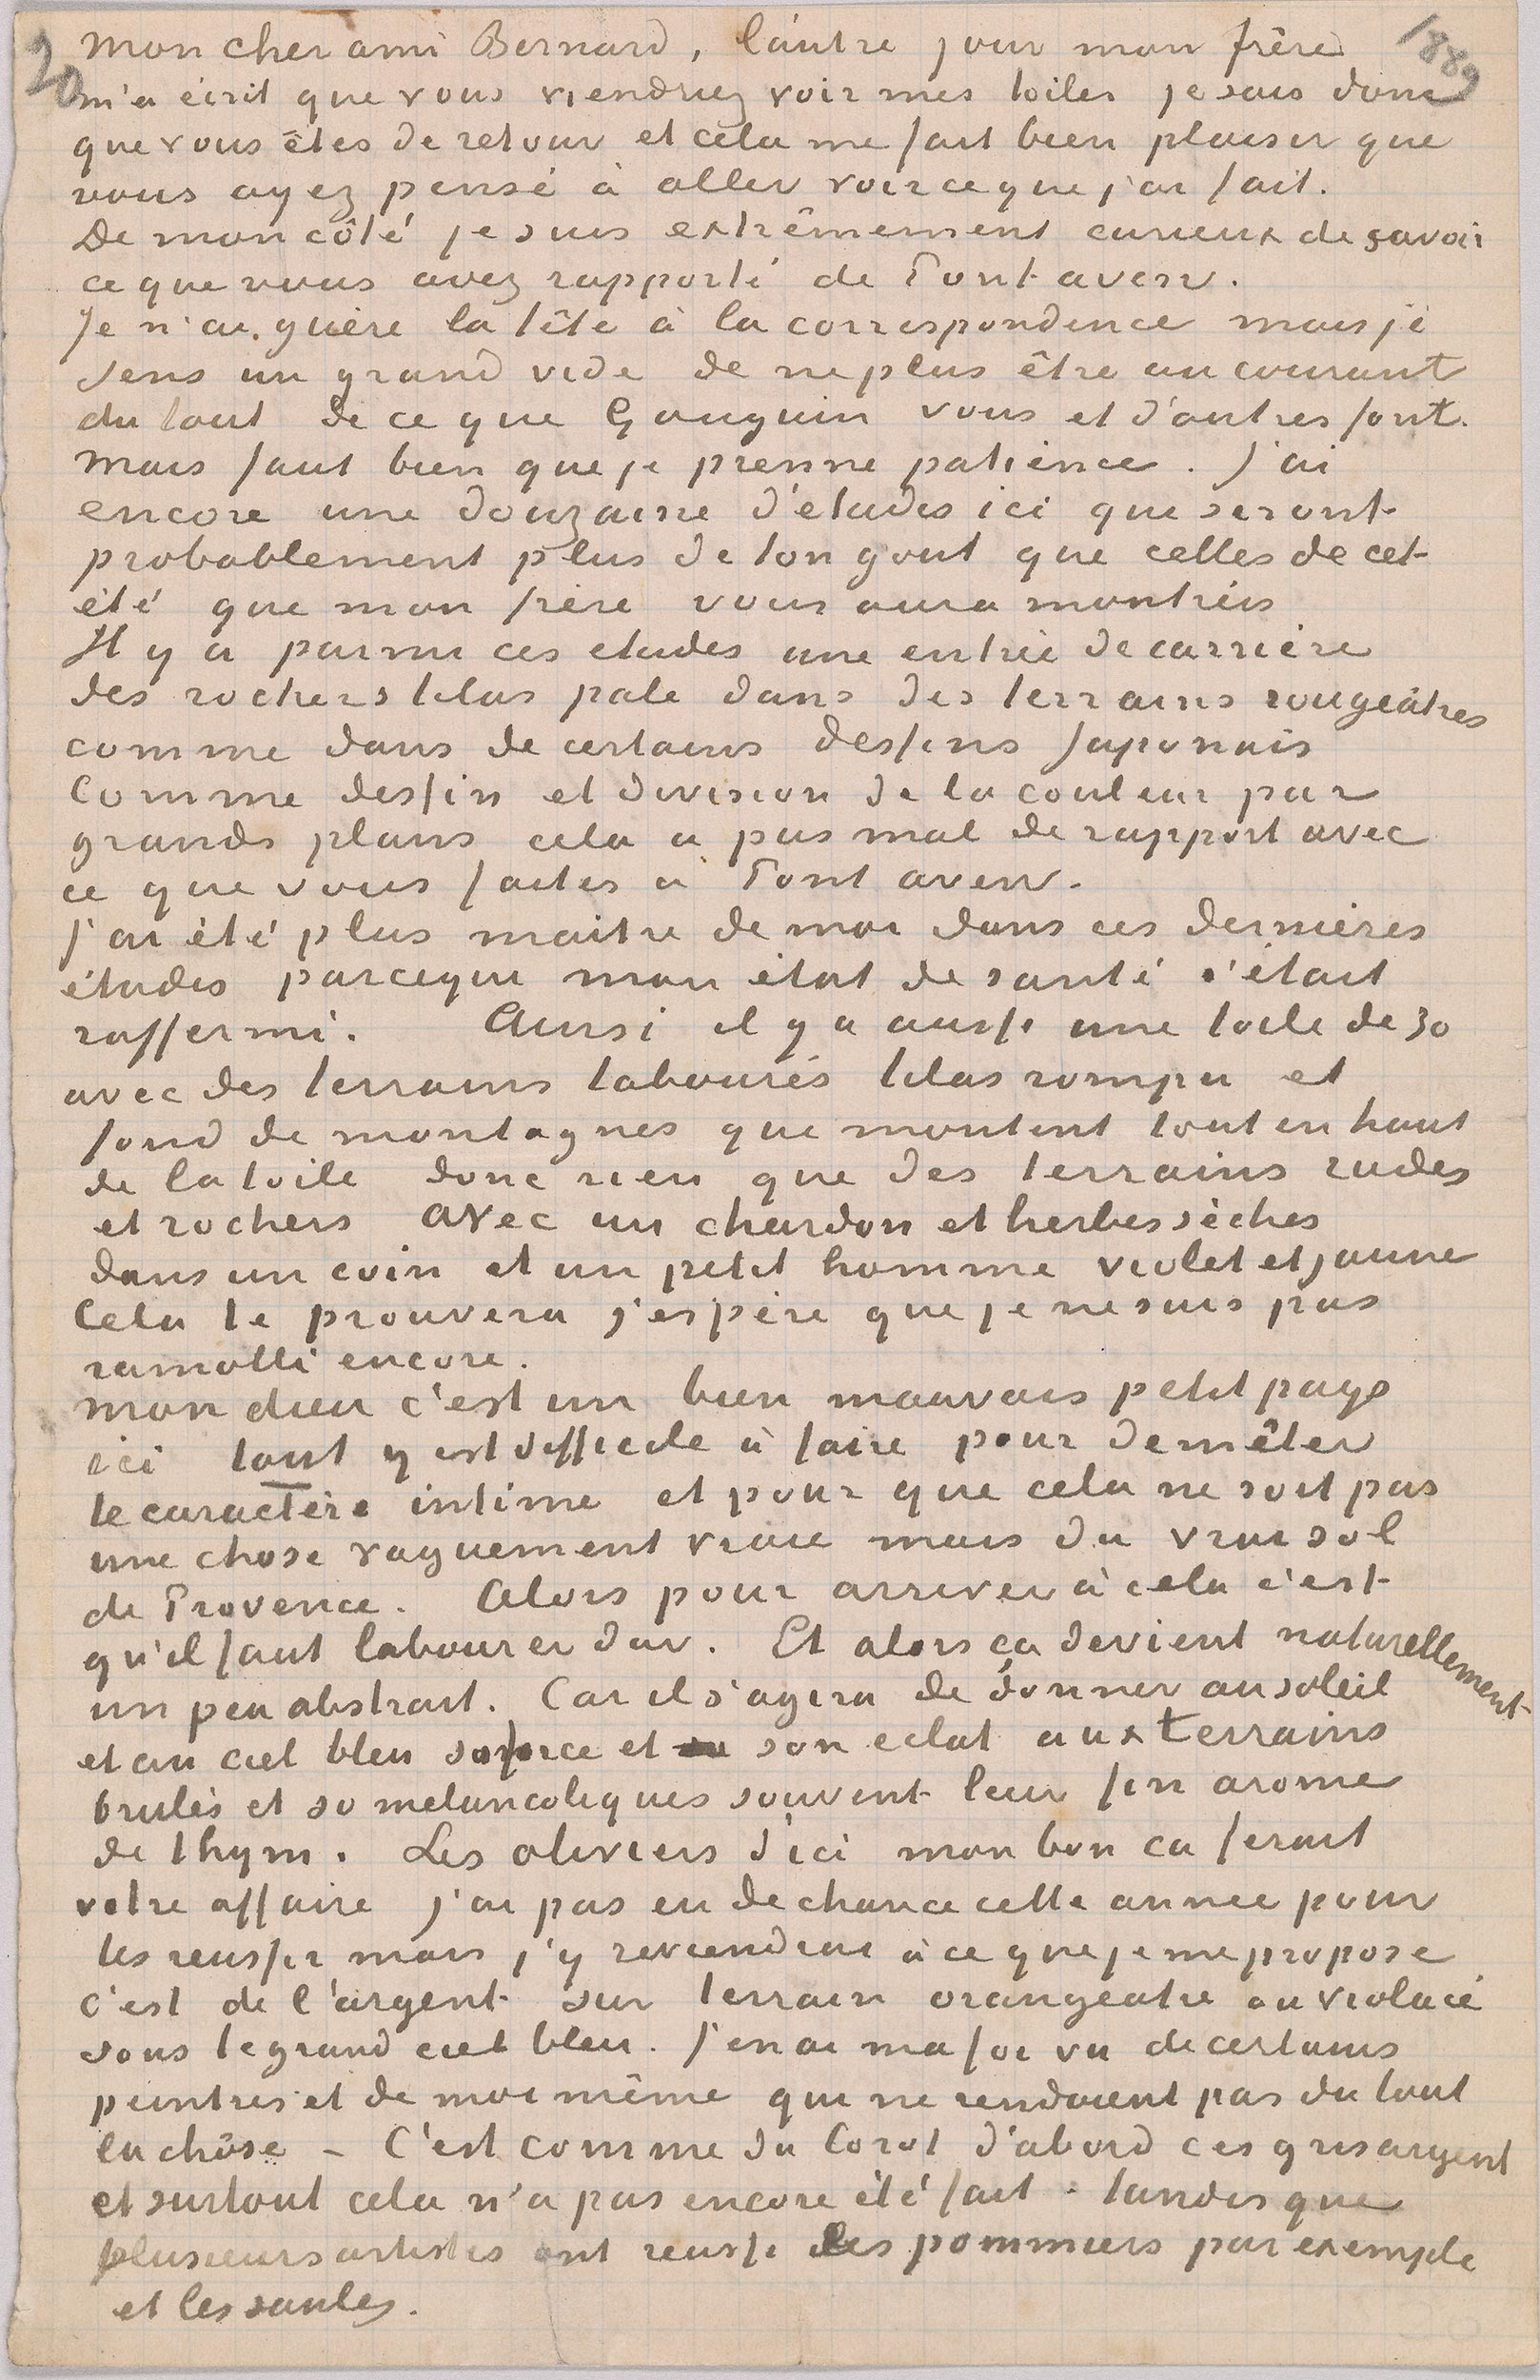 20
1889
Mon cher ami Bernard, l'autre jour mon frère
m'a écrit que vous viendriez voir mes toiles je sais donc
que vous êtes de retour et cela me fait bien plaisir que
vous ayez pensé à aller voir ce que j'ai fait.
De mon côté je suis extrêmement curieux de savoir
ce que vous avez rapporté de Pont aven.
Je n'ai guère la tête à la correspondence mais je
sens un grand vide de ne plus être au courant
du tout de ce que Gauguin vous et d'autres font.
Mais faut bien que je prenne patience. J'ai
encore une douzaine d'études ici que seront
probablement plus de ton gout que celles de cet
été que mon frère vous aura montrées
Il y a parmi ces etudes une entrée de carrière
des rochers lilas pale dans des terrains rougeâtres
comme dans de certains dessins Japonais
Comme dessin et division de la couleur par
grands plans cela a pas mal de rapport avec
ce que vous faites à Pont aven.
J'ai été plus maitre de moi dans ces dernières
études parceque mon état de santé s'était
raffermi. Ainsi il y a aussi une toile de 30
avec des terrains labourés lilas rompu et
fond de montagnes que montent tout en haut
de la toile donc rien que des terrains rudes
et rochers avec un chardon et herbes sèches
dans un coin et un petit homme violet et jaune
Cela te prouvera j'espère que je ne suis pas
ramolli encore.
Mon dieu c'est un bien mauvais petit pays
ici tout y est difficile à faire pour demêler
le caractère intime et pour que cela ne soit pas
une chose vaguement vraie mais du vrai sol
de Provence. Alors pour arriver à cela c'est
qu'il faut labourer dur. Et alors ça devient naturellement
un peu abstrait. Car il s'agira de donner au soleil
et au ciel bleu sa force et son eclat aux terrains
brulés et si melancoliques souvent leur fin arome
de thym. Les oliviers d'ici mon bon ça ferait
votre affaire j'ai pas eu de chance cette année pour
les reussir mais j'y reviendrai à ce que je me propose
c'est de l'argent sur terrain orangeatre ou violacé
sous le grand ciel bleu. J'en ai ma foi vu de certains
peintres et de moi même qui ne rendaient pas du tout
la chôse – C'est comme du Corot d'abord ces gris argent
et surtout cela n'a pas encore été fait. tandis que
plusieurs artistes ont reussi les pommiers par exemple
et les saules.